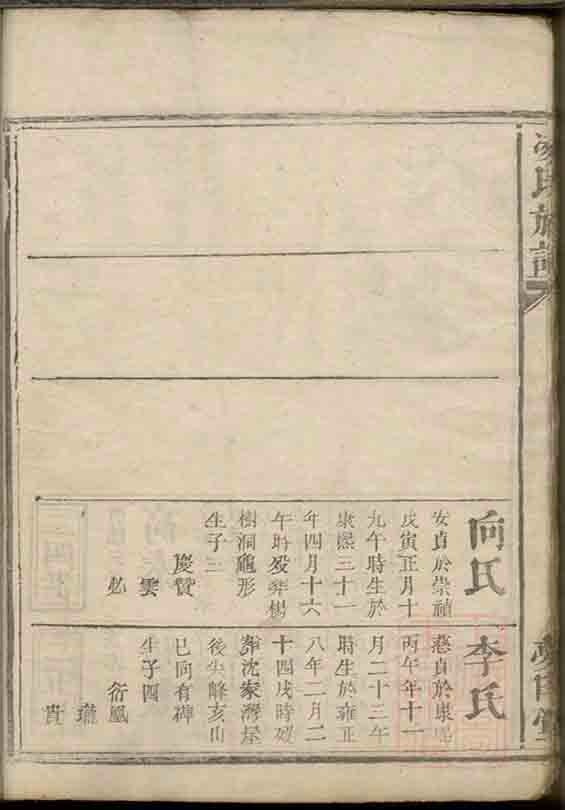 氏族譜
向氏
安貞於崇禎
戊寅正月十
九午時生於
康熙三十一
年四月十六
午時歿葬楊
樹洞龜形
生子三
慶贊
雲
必
李氏
慈貞於康熙
丙午年十一
月二十三午
時生於雍正
八年二月二
十四戌時歿
葬沈家灣屋
後尖峰亥山
巳向有碑
生子四
衍鳳
瓏
貴